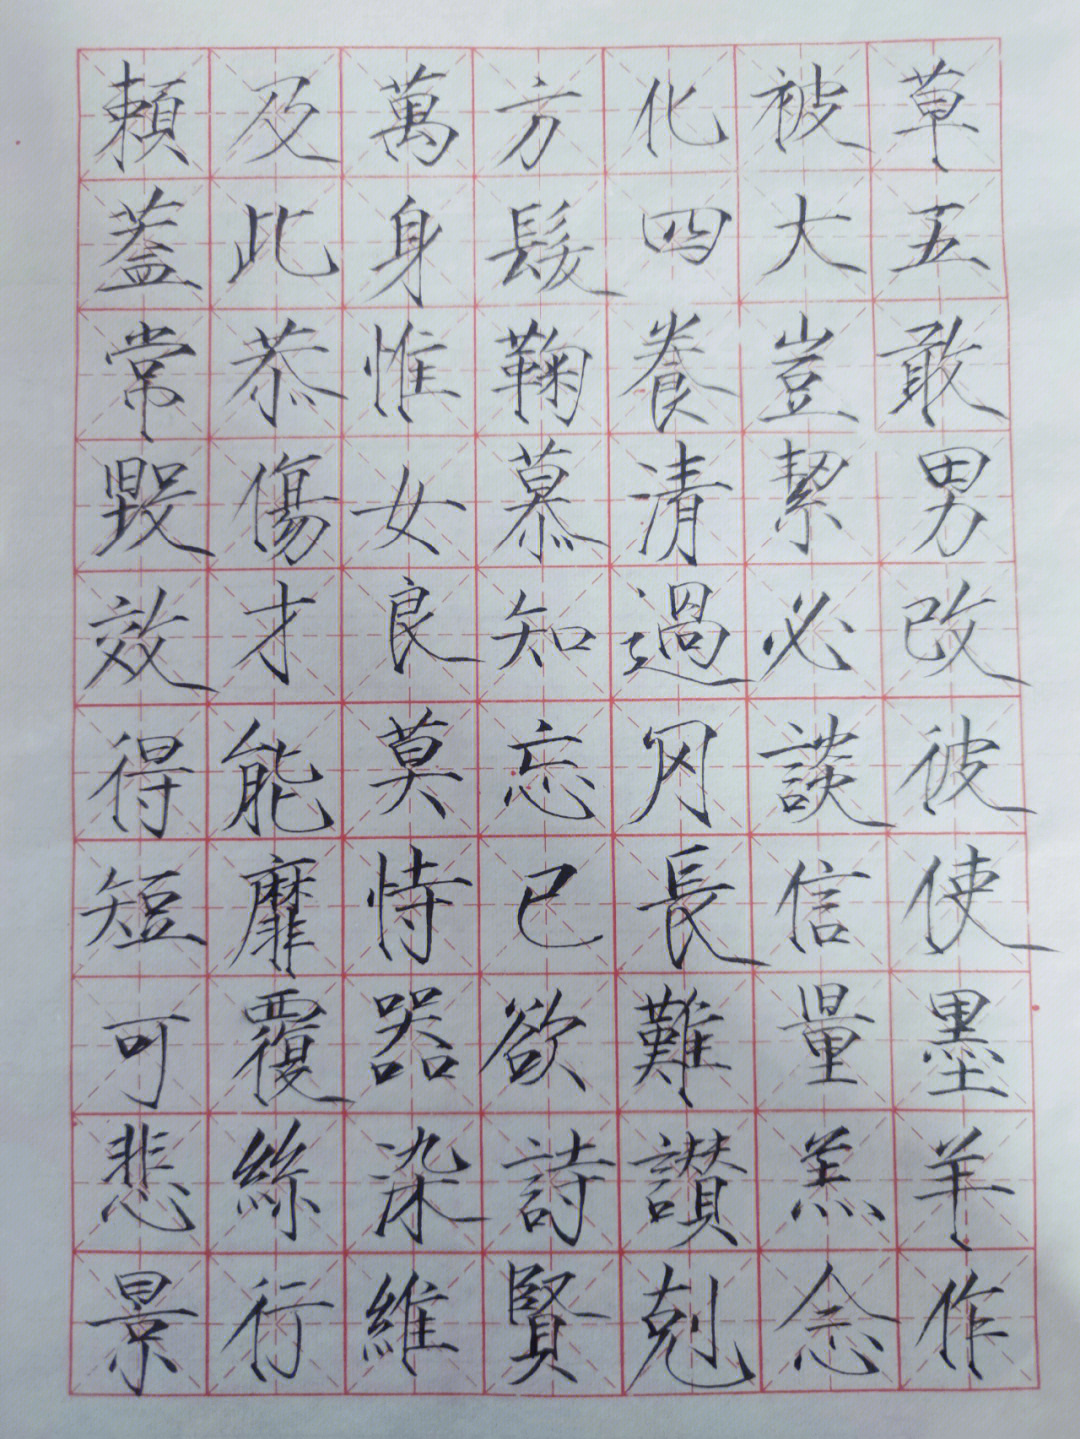 賴及萬方化被草
蓋此身髮四大五
常恭惟鞠養豈敢
毀傷女慕清絜男
效才良知過必改
得能莫忘罔談彼
短靡恃已長信使
可覆器欲難量墨
悲絲染詩讃羔羊
景行維賢剋念作